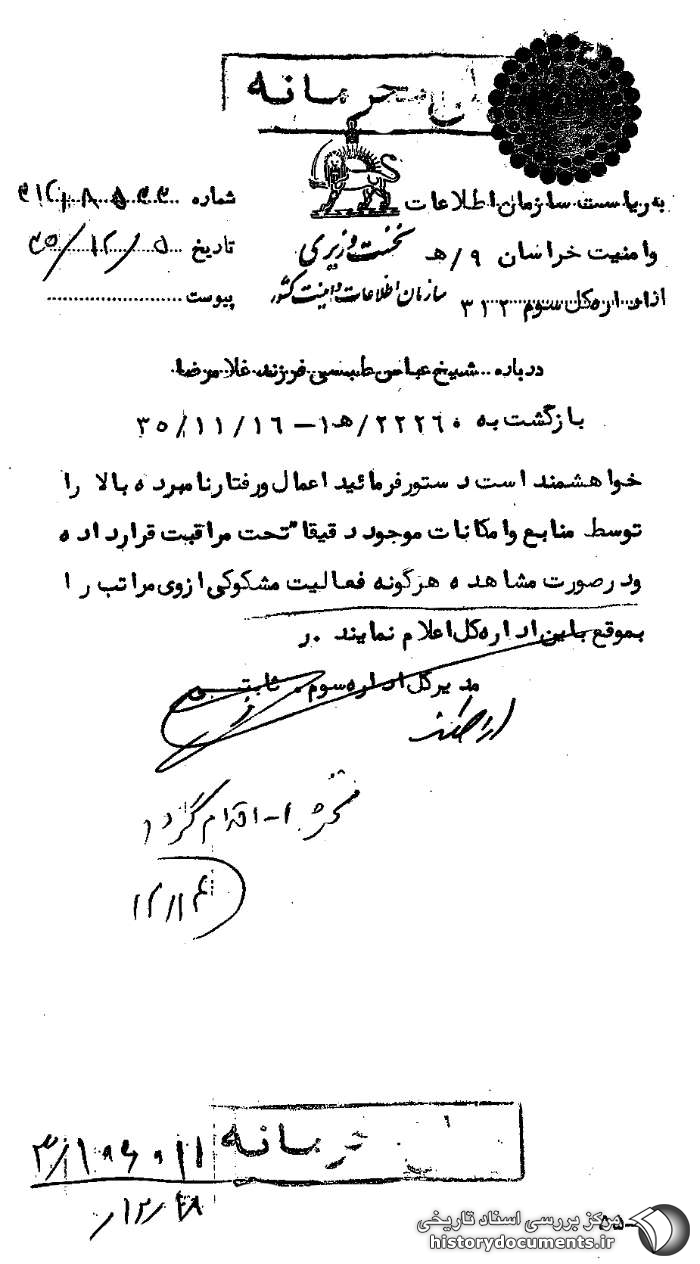 محرمانه
به ریاست سازمان اطلاعات
و امنیت خراسان ۹/هـ
از اداره کل سوم ۳۱۲
نخست وزیری
سازمان اطلاعات و امنیت کشور
شماره
تاریخ ۳۵/۱۲/۵
پیوست
درباره شیخ عباس طبسی فرزند غلامرضا
بازگشت به ۲۲۲۶۰/هـ۱ – ۳۵/۱۱/۱۶
خواهشمند است دستور فرمائید اعمال و رفتار نامبرده بالا را
توسط منابع و امکانات موجود دقیقا" تحت مراقبت قرار داده
و در صورت مشاهده هرگونه فعالیت مشکوکی از وی مراتب را
بموقع باین اداره کل اعلام نمایند . ر
مدیر کل اداره سوم . ثابتی
۱- اقدام گردد
محرمانه
مرکز بررسی اسناد تاریخی
historydocuments.ir